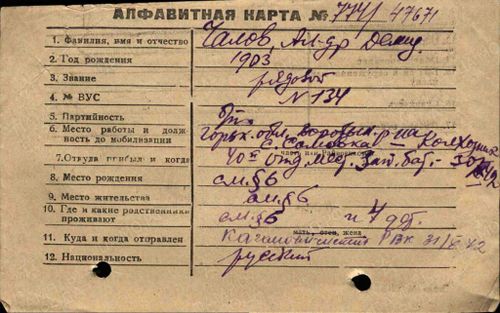 АЛФАВИТНАЯ КАРТА № 777/47671
1. Фамилия, имя и отчество Чалов, Ал-др Демид.
2. Год рождения 1903
3. Звание рядовой
4. № ВУС N 134
5. Партийность б/п
6. Место работы и долж- Горьк. обл.
ность до мобилизации с. – Колхозник
7. Откуда прибыл и когда 40й отд. мест. Зап. бат. –
8. Место рождения см. §6
9. Место жительства см. §6
10. Где и какие родственники см. §6 и 4 дет.
проживают
мать, отец, жена
11. Куда и когда отправлен РВК 42
12. Национальность русский